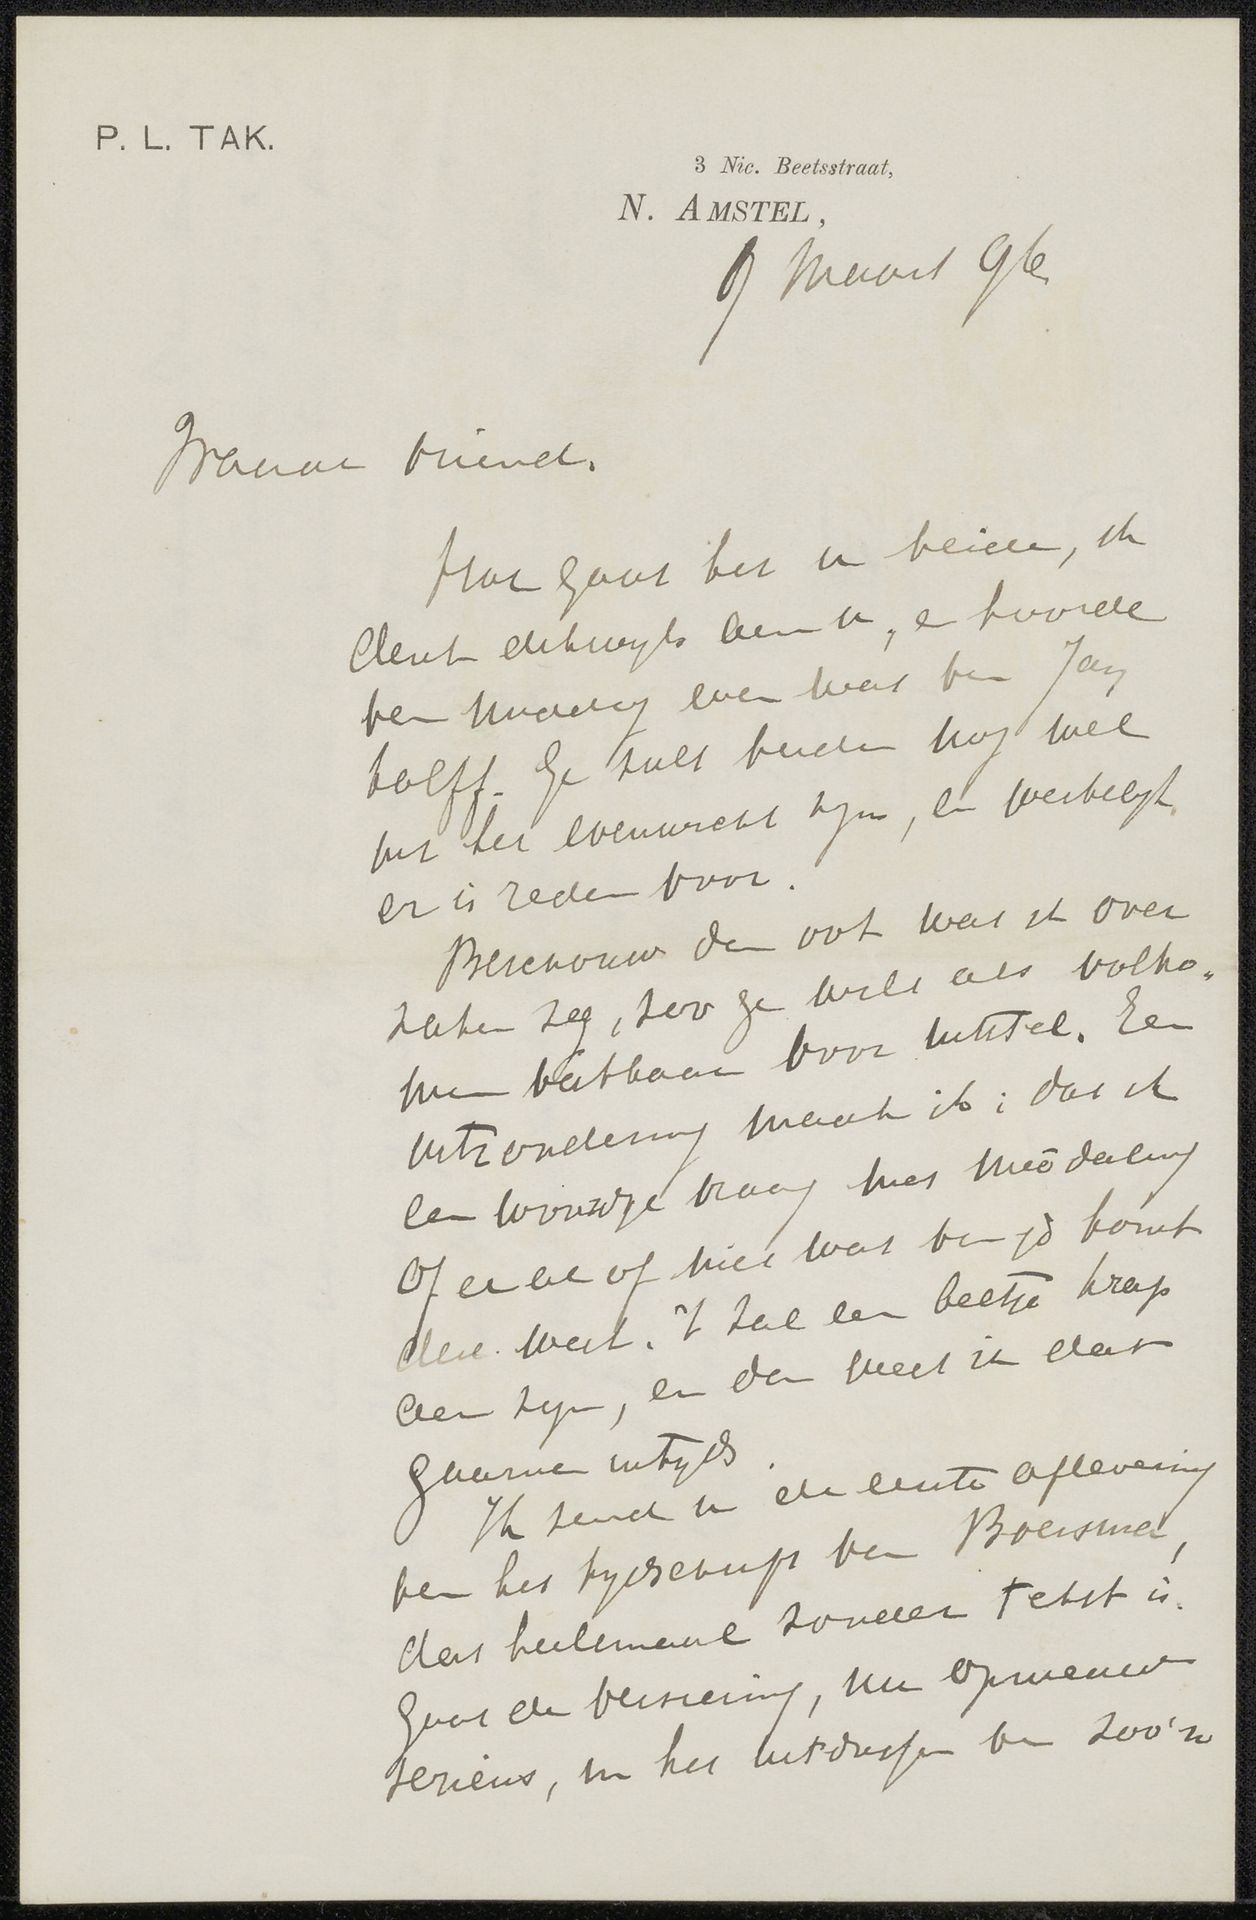 P. L. TAK.
3 Nic. Beetsstraat,
N. AMSTEL,
9 Maart 96
Waarde vriend.
Hoe gaat het u beiden, ik
denk dikwyls aan u, en hoorde
van middag even wat van Jan
Kalff. Ge zult beiden nog wel
uit het evenwicht zyn, en werkelyk
er is reden voor.
Beschouw dan ook wat ik over
zaken zeg, zoo ge wilt als volko-
men vatbaar voor uitstel. Een
uitzondering maak ik: dat ik
een woordje vraag met meedeeling
of er al of niet wat van je komt
deze week. 't Zal een beetje krap
aan zyn, en dan weet ik dat
gaarne intyds.
Ik zend u de eerste aflevering
van het tydschrift van Boersma,
dat heelemaal zonder tekst is.
Gaat de versiering, nu opnieuw
serieus, in het uitdossen van zoo'n